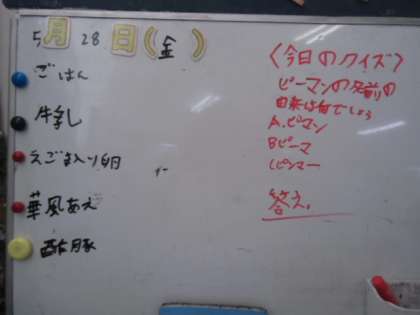 5月28日(金)
ごはん
牛乳
華風あえ
酢豚
〈今日のクイズ〉
ピーマンの名前の
由来は何でしょう
A.ピマン
Bピーマ
Cピンマー
答え.